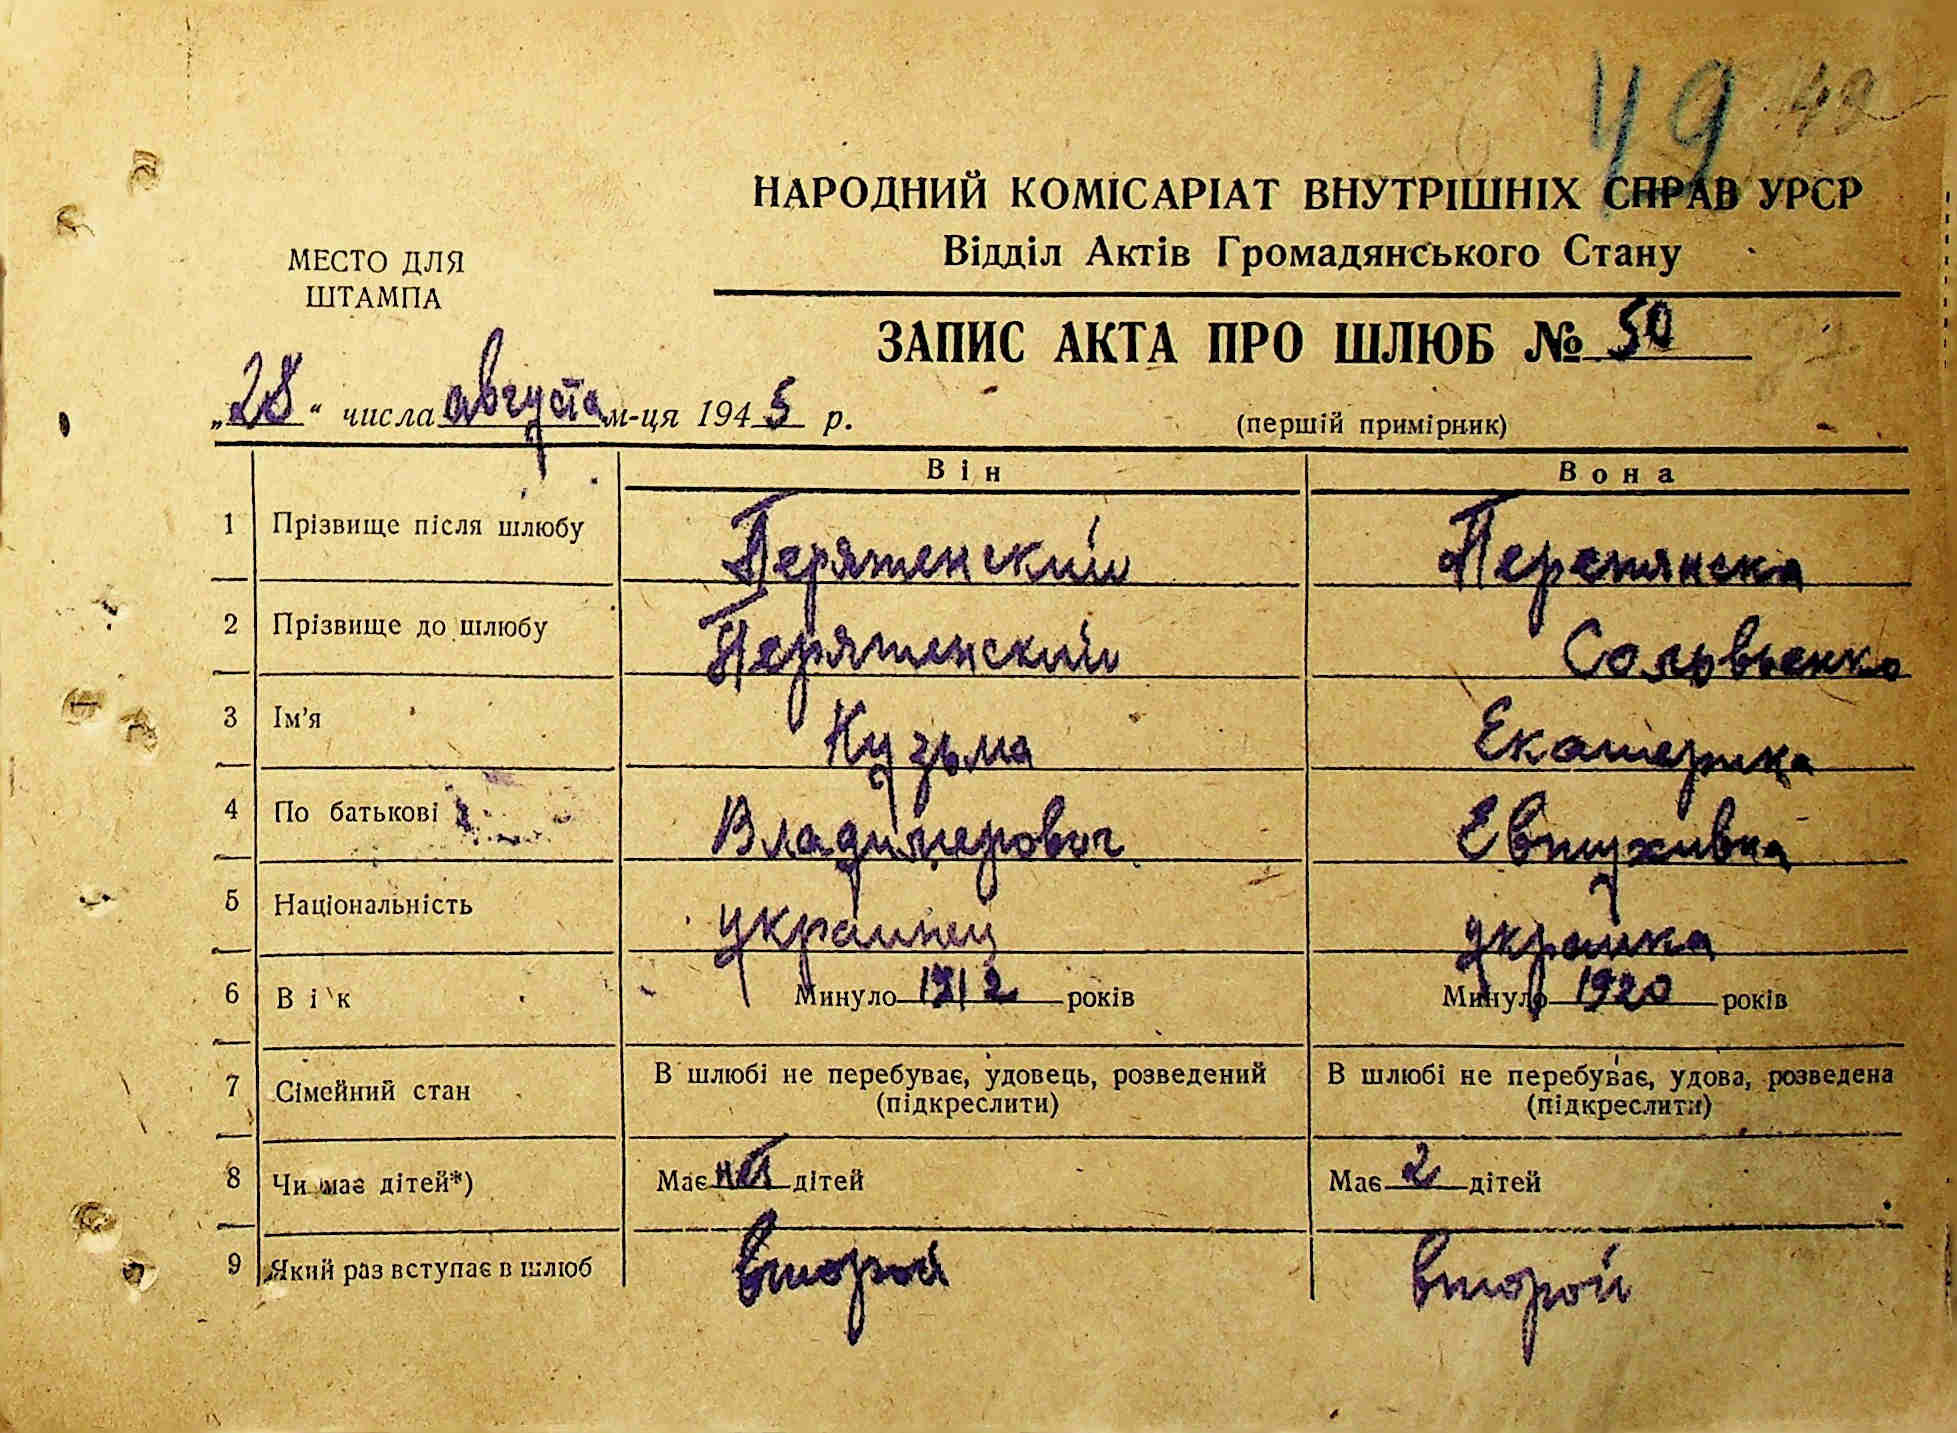 49 49
НАРОДНИЙ КОМІСАРІАТ ВНУТРІШНІХ СПРАВ УРСР
Відділ Актів Громадянського Стану
МЕСТО ДЛЯ
ШТАМПА
ЗАПИС АКТА ПРО ШЛЮБ № 50
„28“ числа августа м-ця 1945 р.
(першій примірник)
Він Вона
1 Прізвище після шлюбу Перятенский
2 Прізвище до шлюбу Перятенский Соловьенко
3 Ім'я Кузьма Екатерина
4 По батькові Владимерович Евтухивна
5 Національність украинец украинка
6 Вік Минуло 1912 років Минуло 1920 років
7 Сімейний стан В шлюбі не перебуває, удовець, розведений (підкреслити) В шлюбі не перебуває, удова, розведена (підкреслити)
8 Чи має дітей*) Має нет дітей Має 2 дітей
9 Який раз вступає в шлюб второй второй